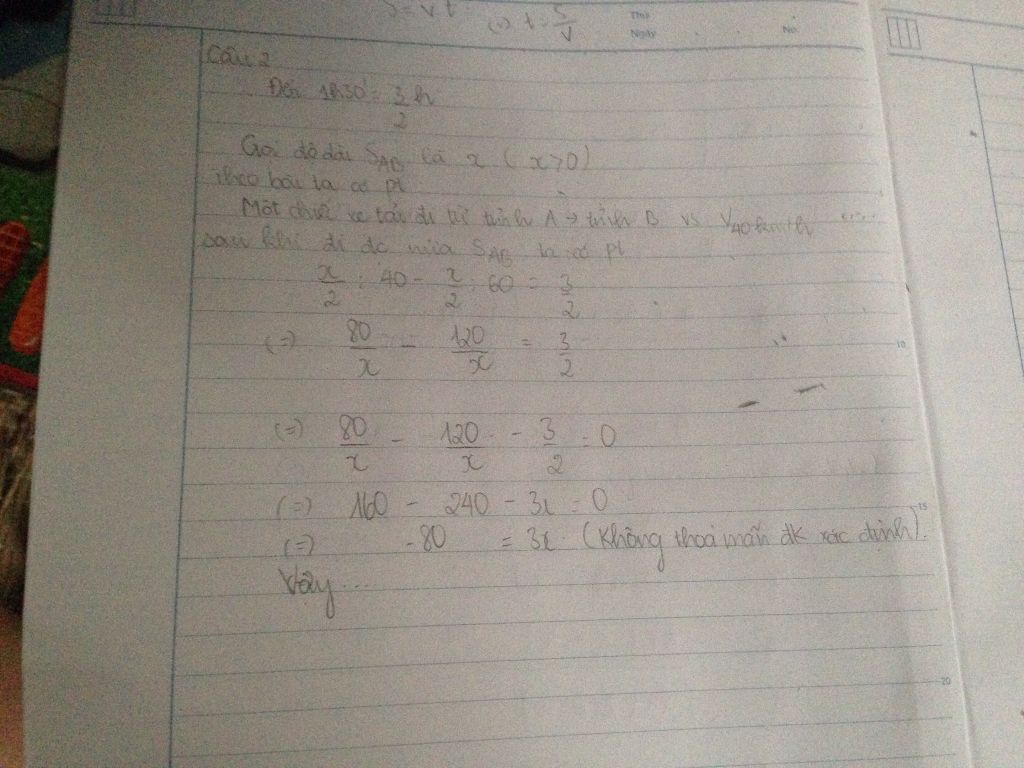 S = vt (=) t = S/V
Thứ
Ngày
No
Câu 2
Đổi 1h30' = 3/2 h
Gọi độ dài S_AB là x (x>0)
theo bài ta có pt
Một chiếc xe tải đi từ tỉnh A → tỉnh B vs V 40km/h
sau khi đi dc nửa S_AB ta có pt
x/2 : 40 - x/2 : 60 = 3/2
(=) 80/x - 120/x = 3/2
10
(=) 80/x - 120/x - 3/2 = 0
(=) 160 - 240 - 3x = 0
15
(=) -80 = 3x (Không thoả mãn đk xác định)
Vậy ....
20